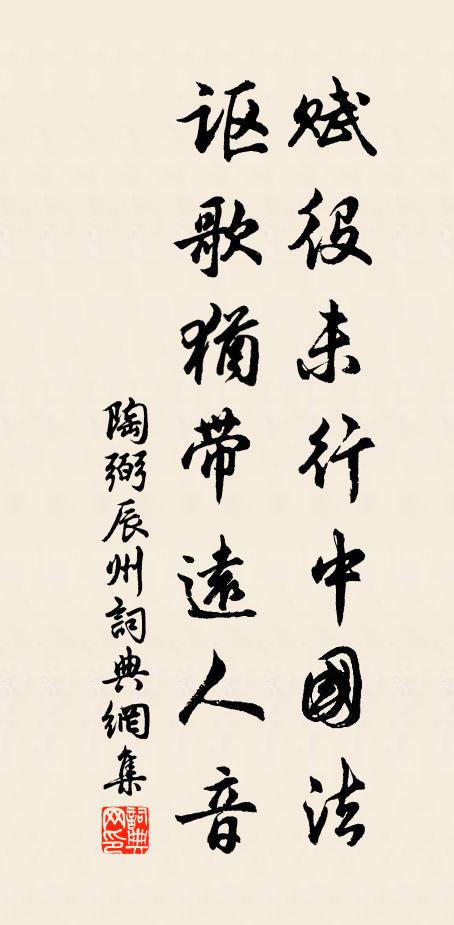 赋役未行中國法
讴歌猶带遠人音
陶弼辰州詞典網集
詞典網印